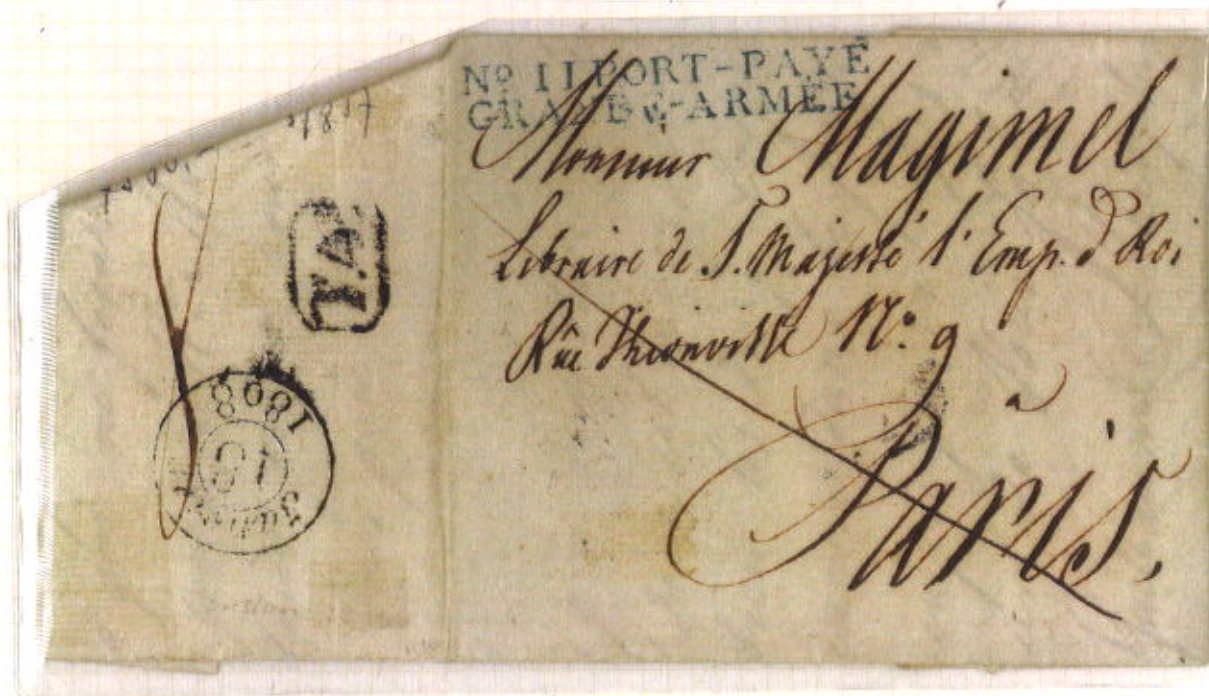 Nº 11 PORT-PAYÉ
GRANDE-ARMÉE
Monsieur Magimel
Libraire de S. Majesté l'Emp. & Roi
Rüe Thionville Nº. 9
à
Paris.
P.4.
1808
18